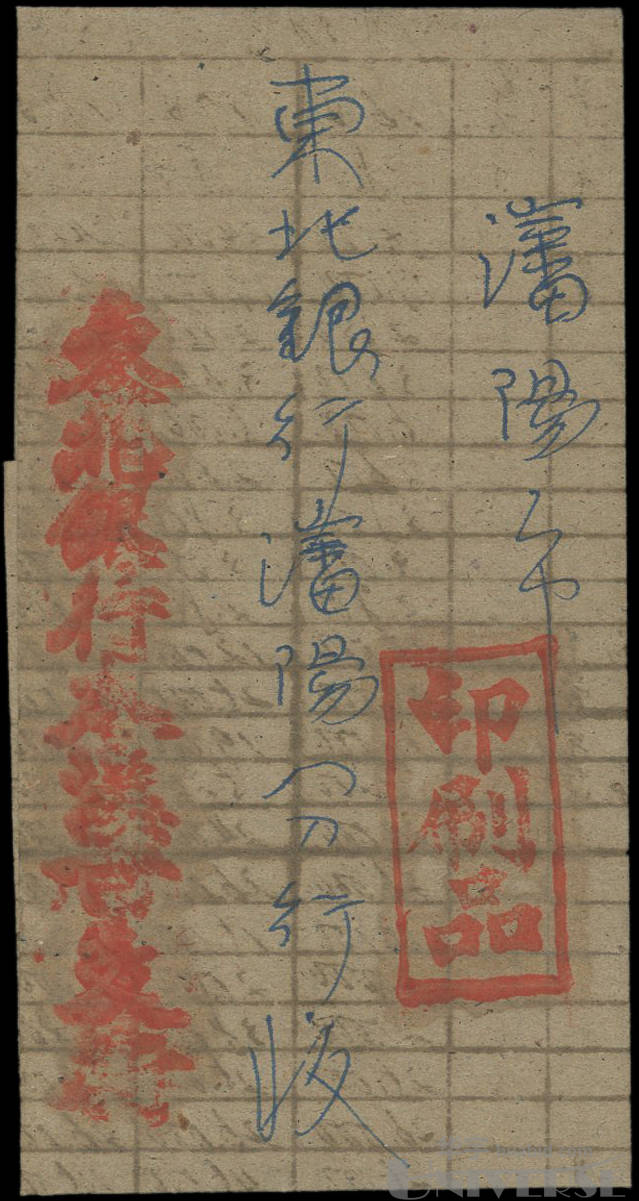 瀋陽市
印刷品
東北銀行瀋陽分行收
東北銀行本溪支行
UNIVERSE